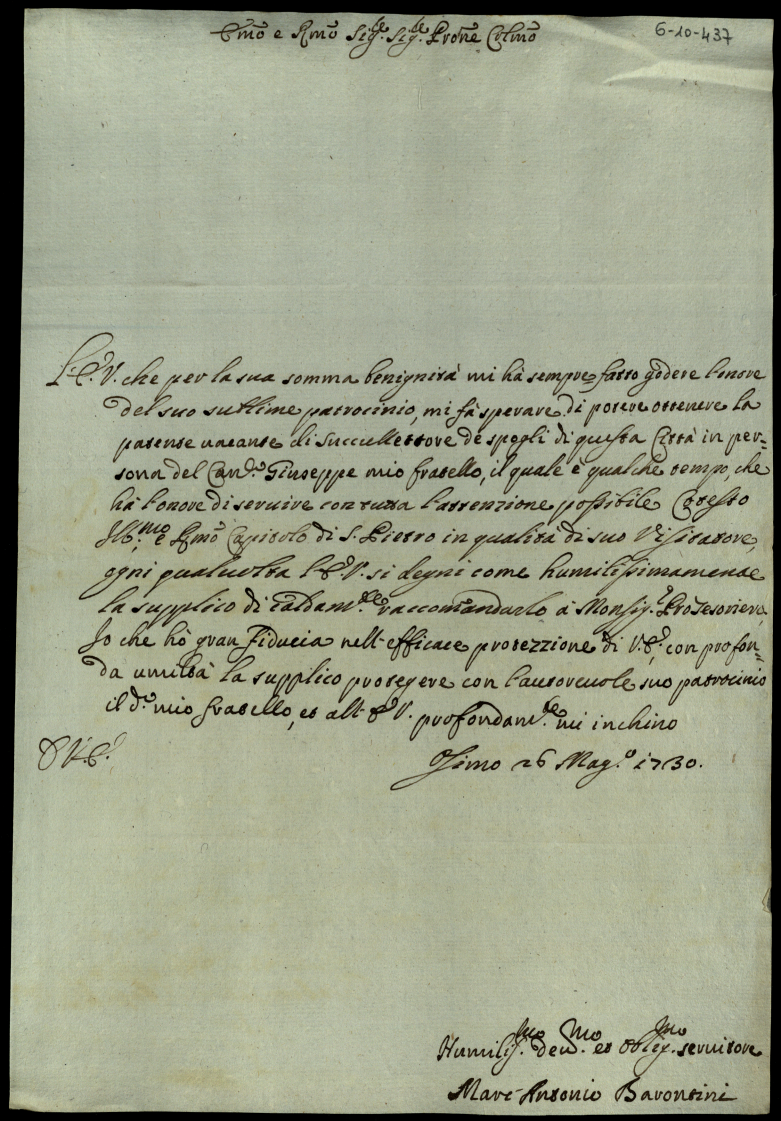 Emo e Rmo Sig.re Sig.re Prone Colmo
6-10-437
L'E. V. che per la sua somma benignità mi hà sempre fatto godere l'onore
del suo sublime patrocinio, mi fà sperare di potere ottenere la
patente vacante di Succullettore de spogli di questa Città in per=
sona del Can.co Giuseppe mio fratello, il quale è qualche tempo, che
hà l'onore di servire con tutta l'attenzione possibile Cotesto
Ill.mo e Rmo Capitolo di S. Pietro in qualità di suo Visitatore,
ogni qualvolta l'E. V. si degni come humilissimamente
la supplico di caldam.te raccomandarlo à Monsig.r Protesoriero,
Io che hò gran fiducia nell'efficace protezzione di V. E., con profon=
da umiltà la supplico protegere con l'autorevole suo patrocinio
il d.o mio fratello, et all'E. V. profondam.te mi inchino
D V. E.
Osimo 26 Mag.o 1730.
Humilis.mo dev.mo et oblig.mo servitore
Marc'Antonio Barontini